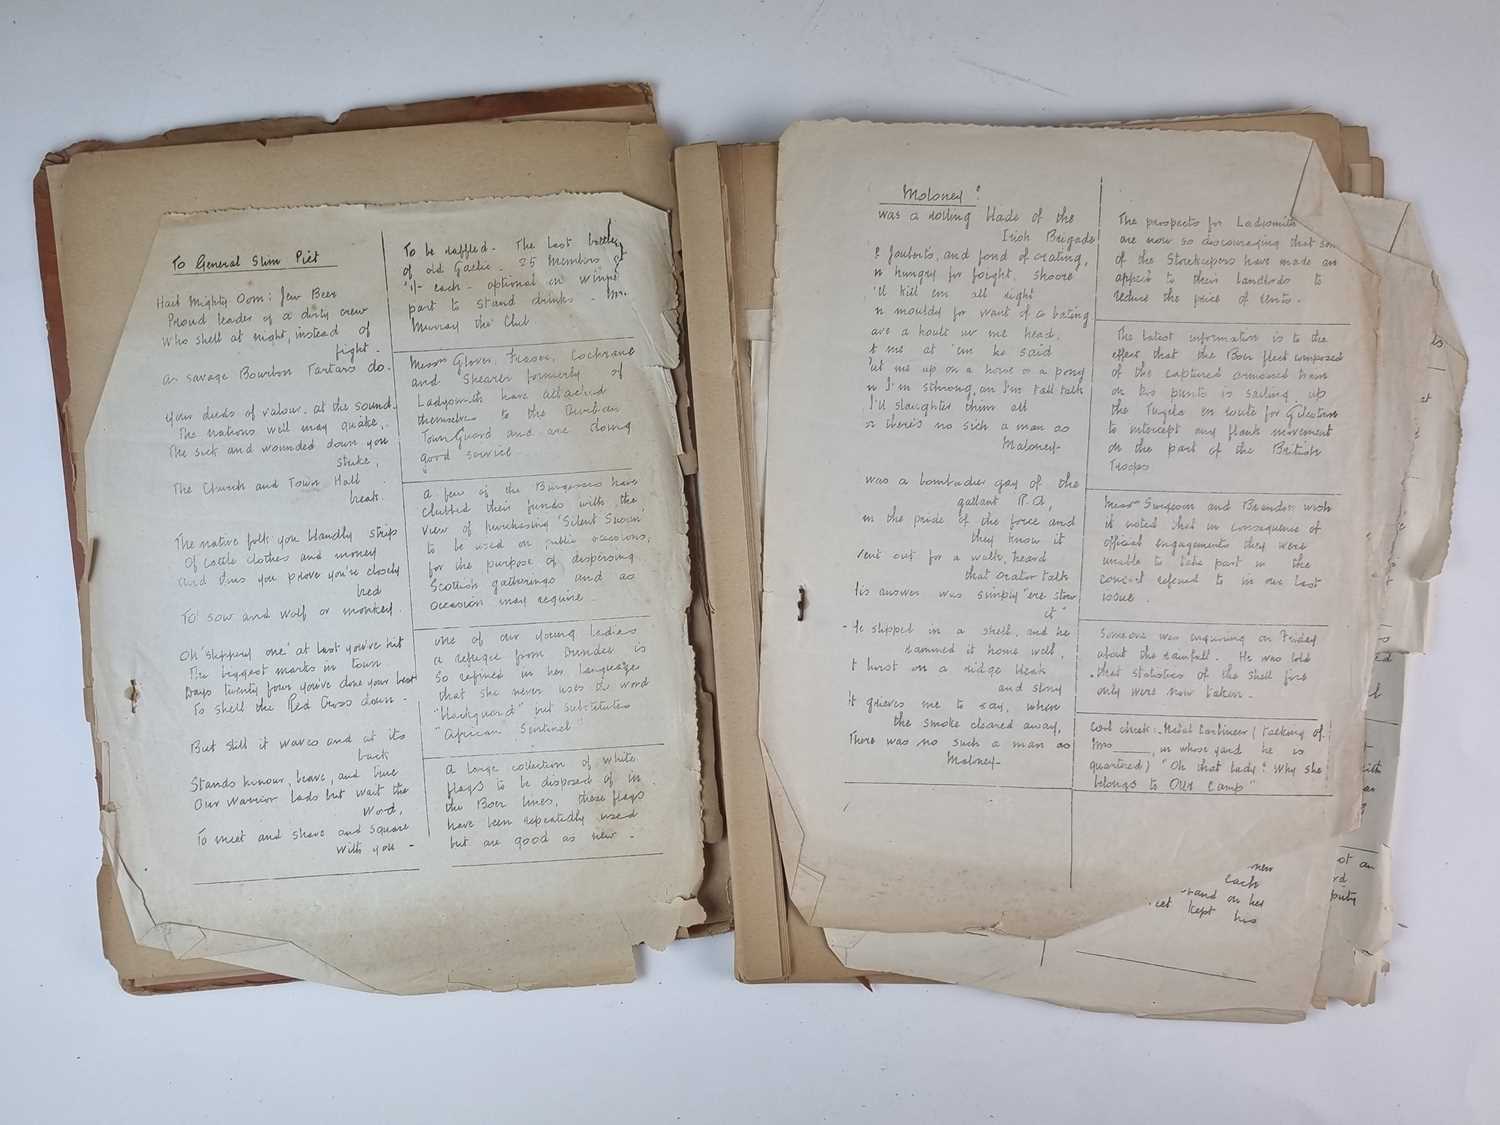 To General Slim Piet
Hail Mighty Oom: few Beer
Proud leader of a dirty crew
Who shell at night, instead of
fight -
As savage Bourbon Tartars do.
Your deeds of valour, at the sound
The nations well may quake,
The sick and wounded down you
strike,
The Church and Town Hall
break.
The native folk you blandly strip
Of cattle clothes and money
And thus you prove you're closely
bred
To sow and wolf or monkey.
Oh 'slippery one' at last you've hit
The biggest marks in town.
Days twenty four you've done your best
To shell the Red Cross down -
But still it waves and at its
back
Stands honour, brave, and true
Our warrior lads but wait the
word,
To meet and share and square
with you -
To be raffled. The last bottle
of old Gaelic. 25 members at
1/- each - optional on winner's
part to stand drinks - Mr.
Murray the Club.
Messrs Glover, Fraser, Cochrane
and Shearer formerly of
Ladysmith have attached
themselves to the Durban
Town Guard and are doing
good service.
A few of the Burgesses have
clubbed their funds with the
view of purchasing 'Silent Susan'
to be used on public occasions,
for the purpose of dispersing
Scottish gatherings and as
occasion may require.
One of our young ladies
a refugee from Dundee is
so refined in her language
that she never uses the word
"blackguard" but substitutes
"African Sentinel"
A large collection of white
flags to be disposed of in
the Boer lines, these flags
have been repeatedly used
but are good as new -
Moloney:
was a rolling blade of the
Irish Brigade
Jauberts, and fond of orating,
n' hungry for foight, shoore
'll kill em all right
n mouldy for want of a bating
ave a hoult uv me head,
t me at 'im he said
ut me up on a horse or a pony
n I'm strong, an I'm tall talk
I'll slaughter them all
there's no sich a man as
Maloney -
was a bombadier gay of the
gallant R.A,
in the pride of the force and
they know it
Went out for a walk, heard
that orator talk
His answer was simply "ere stow
it"
- He slipped in a shell, and he
rammed it home well,
t burst on a ridge bleak
and stony
It grieves me to say, when
the smoke cleared away,
There was no such a man as
Maloney -
The prospects for Ladysmith
are now so discouraging that som
of the Storekeepers have made an
appeal to their landlords to
reduce the price of rents.
The latest information is to the
effect that the Boer fleet composed
of the captured armoured train
on two punts is sailing up
the Tugela en route for Gibraltar
to intercept any flank movement
on the part of the British
Troops
Messrs Surgeson and Brandon wish
it noted that in consequence of
official engagements they were
unable to take part in the
concert referred to in our last
issue.
Someone was enquiring on Friday
about the rainfall. He was told
that statistics of the shell fire
only were now taken -
Cool cheek: Natal Carbineer (talking of
Mrs ____, in whose yard he is
quartered) "Oh that lady! Why she
belongs to OUR camp"
new
each
stand on her
kept his